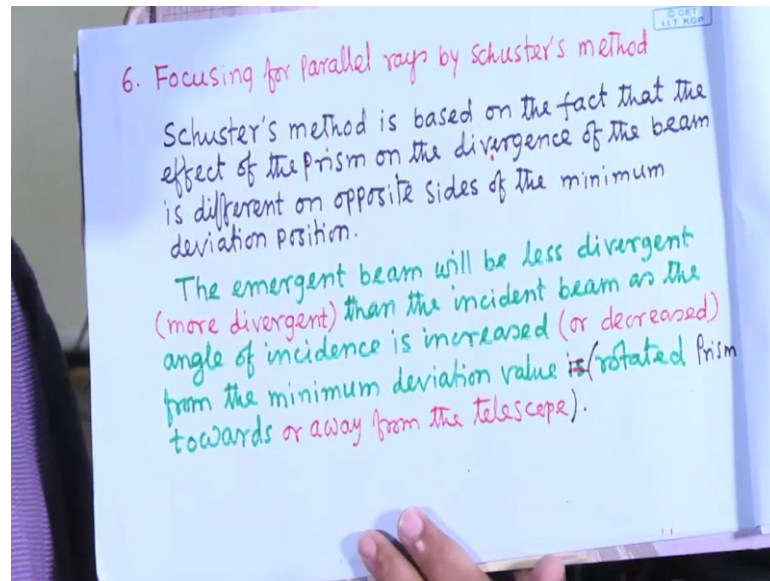 © CET
I.I.T. KGP
6. Focusing for parallel rays by Schuster's method
Schuster's method is based on the fact that the
effect of the Prism on the divergence of the beam
is different on opposite sides of the minimum
deviation position.
The emergent beam will be less divergent
(more divergent) than the incident beam as the
angle of incidence is increased (or decreased)
from the minimum deviation value (rotated Prism
towards or away from the telescope).